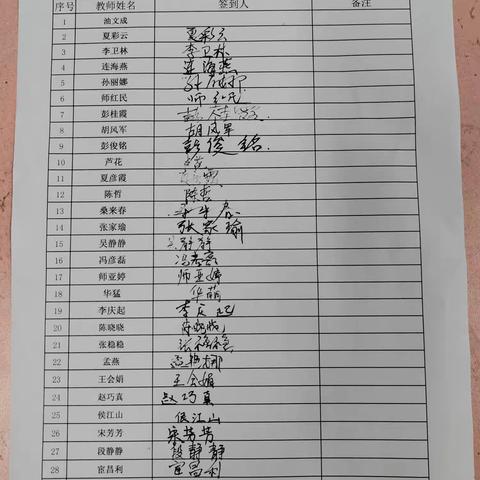 序号 教师姓名 签到人 备注
1 池文成
2 夏彩云 夏彩云
3 李卫林 李卫林
4 连海燕 连海燕
5 孙丽娜 孙丽娜
6 师红民 师红民
7 彭桂霞 彭桂霞
8 胡凤军 胡凤军
9 彭俊铭 彭俊铭
10 芦花
11 夏彦霞
12 陈哲 陈哲
13 桑来春
14 张家瑜 张家瑜
15 吴静静 吴静静
16 冯彦磊
17 师亚婷 师亚婷
18 华猛 华萌
19 李庆起 李庆起
20 陈晓晓 陈晓晓
21 张稳稳 张稳稳
22 孟燕 孟艳娜
23 王会娟 王会娟
24 赵巧真 赵巧真
25 侯江山 侯江山
26 宋芳芳 宋芳芳
27 段静静 段静静
28 宦昌利 宦昌利